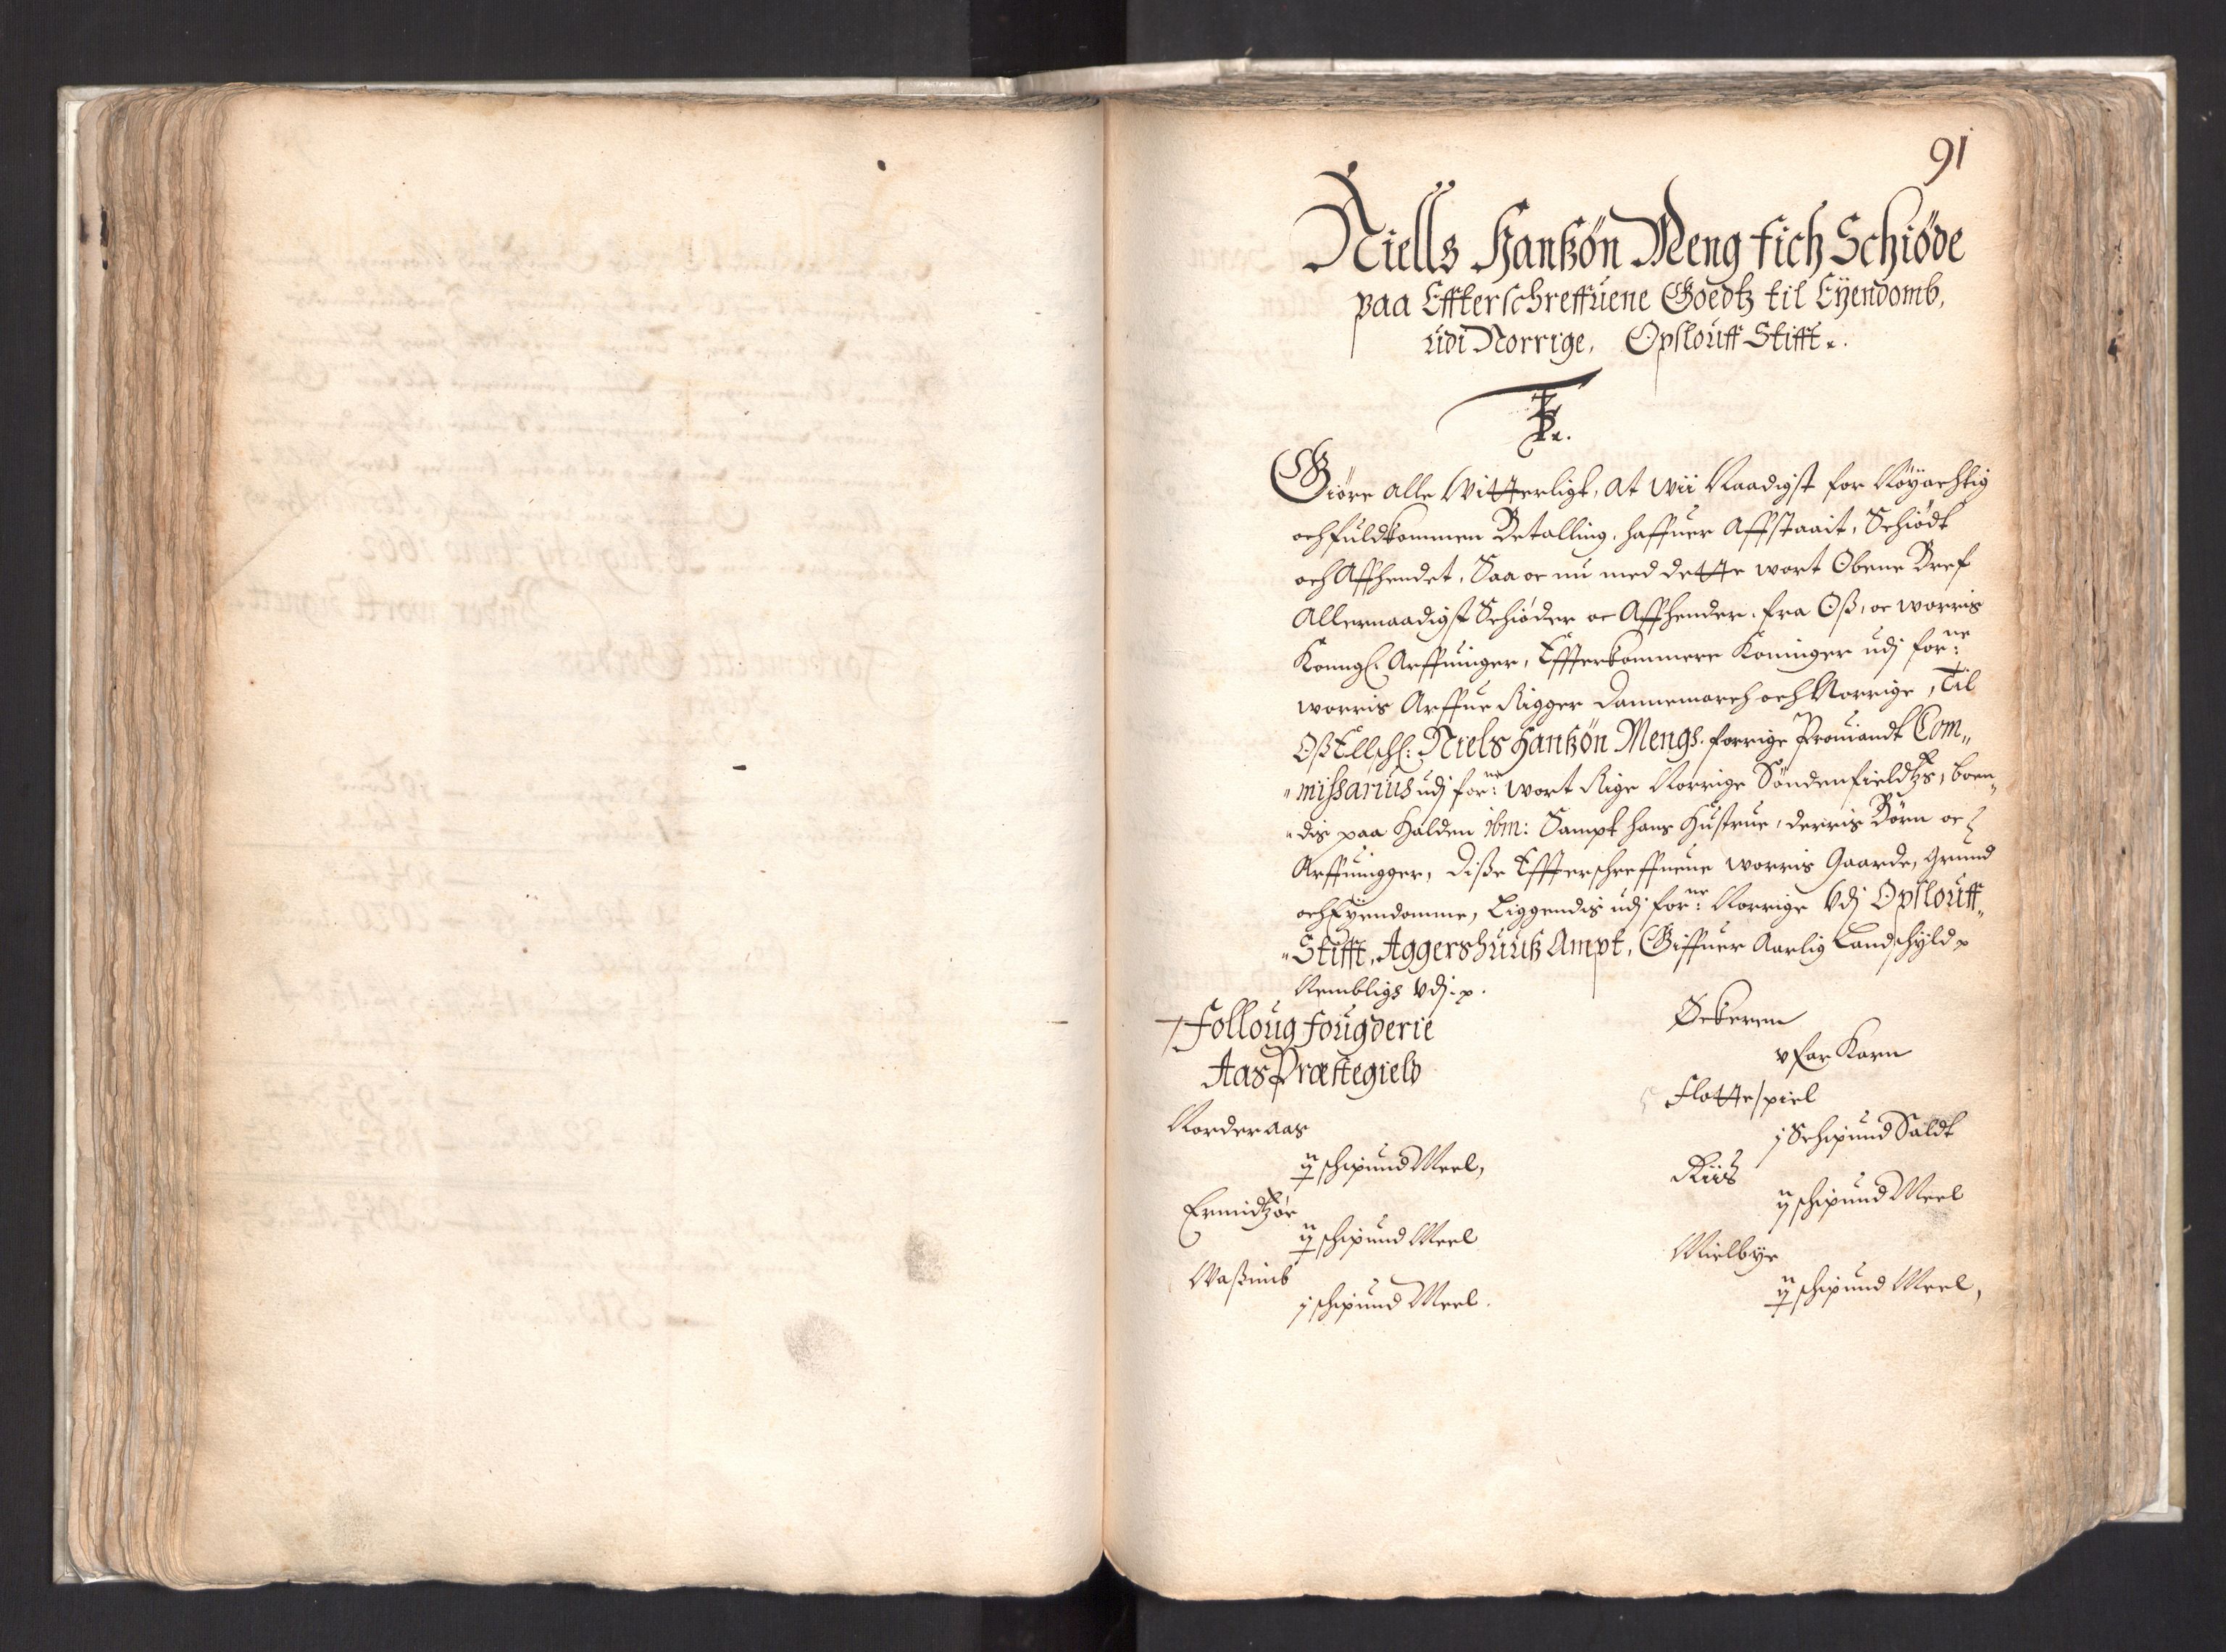 91
Niells Hanßön Meng fich Schiøde
paa Effterschreffuene Goedtz til Eÿendomb,
udi Norrige, Opslouff Stifft.
Giöre alle Witterligt, at wii Naadigst for Nöyachtig
och fuldkommen Betalling, haffuer Affstaait, Schiödt
och Affhendet, Saa oc nu med dette wort Obene Bref
Allernaadigst Schiöder oc Affhender, fra Oß, oc worris
Konngl: Arffuinger, Effterkommere Koninger udj for:ne
worris Arffue Rigger Dannemarch och Norrige, Til
Oß Ellschl: Niels Hanßön Mengs. forrige Prouiandt Com„
„missarius udj for:ne wort Rige Norrige Söndenfieldtzs, boen„
„dis paa Halden ibm: Sampt hans Hustrue, derris Börn oc
Arffuingger, Diße Effterschreffuene worris Gaarde, Grund
och Eÿendomme, Liggendis udj for:ne Norrige Vdj Opslouff„
„Stifft, Aggershuuß Ampt, Giffuer Aarlig Landschÿld
Nembligs Vdj.
Folloug fougderie
Aas Præstegield
Norder aas
ij schipund Meel,
Ermidtzör
ij schipund Meel
Waßimb
j schipund Meel.
Ørkeren
v far Korn
Flottespiel
j Schipund Saldt
Riis
ij schipund Meel
Mielbÿe
ij schipund Meel,